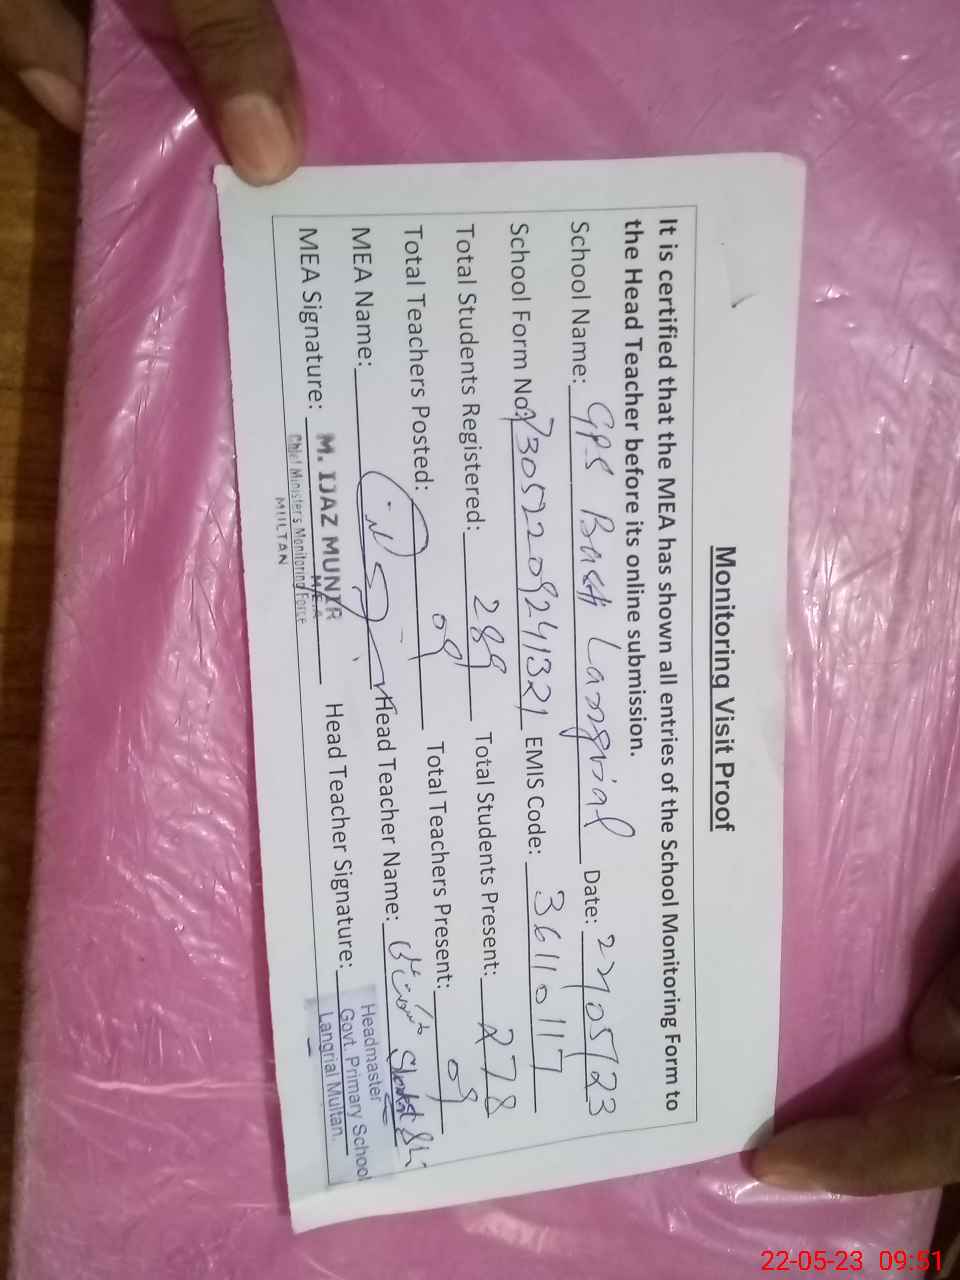 Monitoring Visit Proof
It is certified that the MEA has shown all entries of the School Monitoring Form to
the Head Teacher before its online submission.
School Name: GPS Basti Langrial Date: 22/05/23
School Form No: EMIS Code: 36110117
Total Students Registered: 289 Total Students Present: 278
Total Teachers Posted: 09 Total Teachers Present: 09
MEA Name: Head Teacher Name:
MEA Signature: Head Teacher Signature:
M. IJAZ MUNIR
M.E.A
Chief Minister's Monitoring Force
MULTAN
Headmaster
Govt. Primary School
Langrial Multan.
22-05-23 09:51